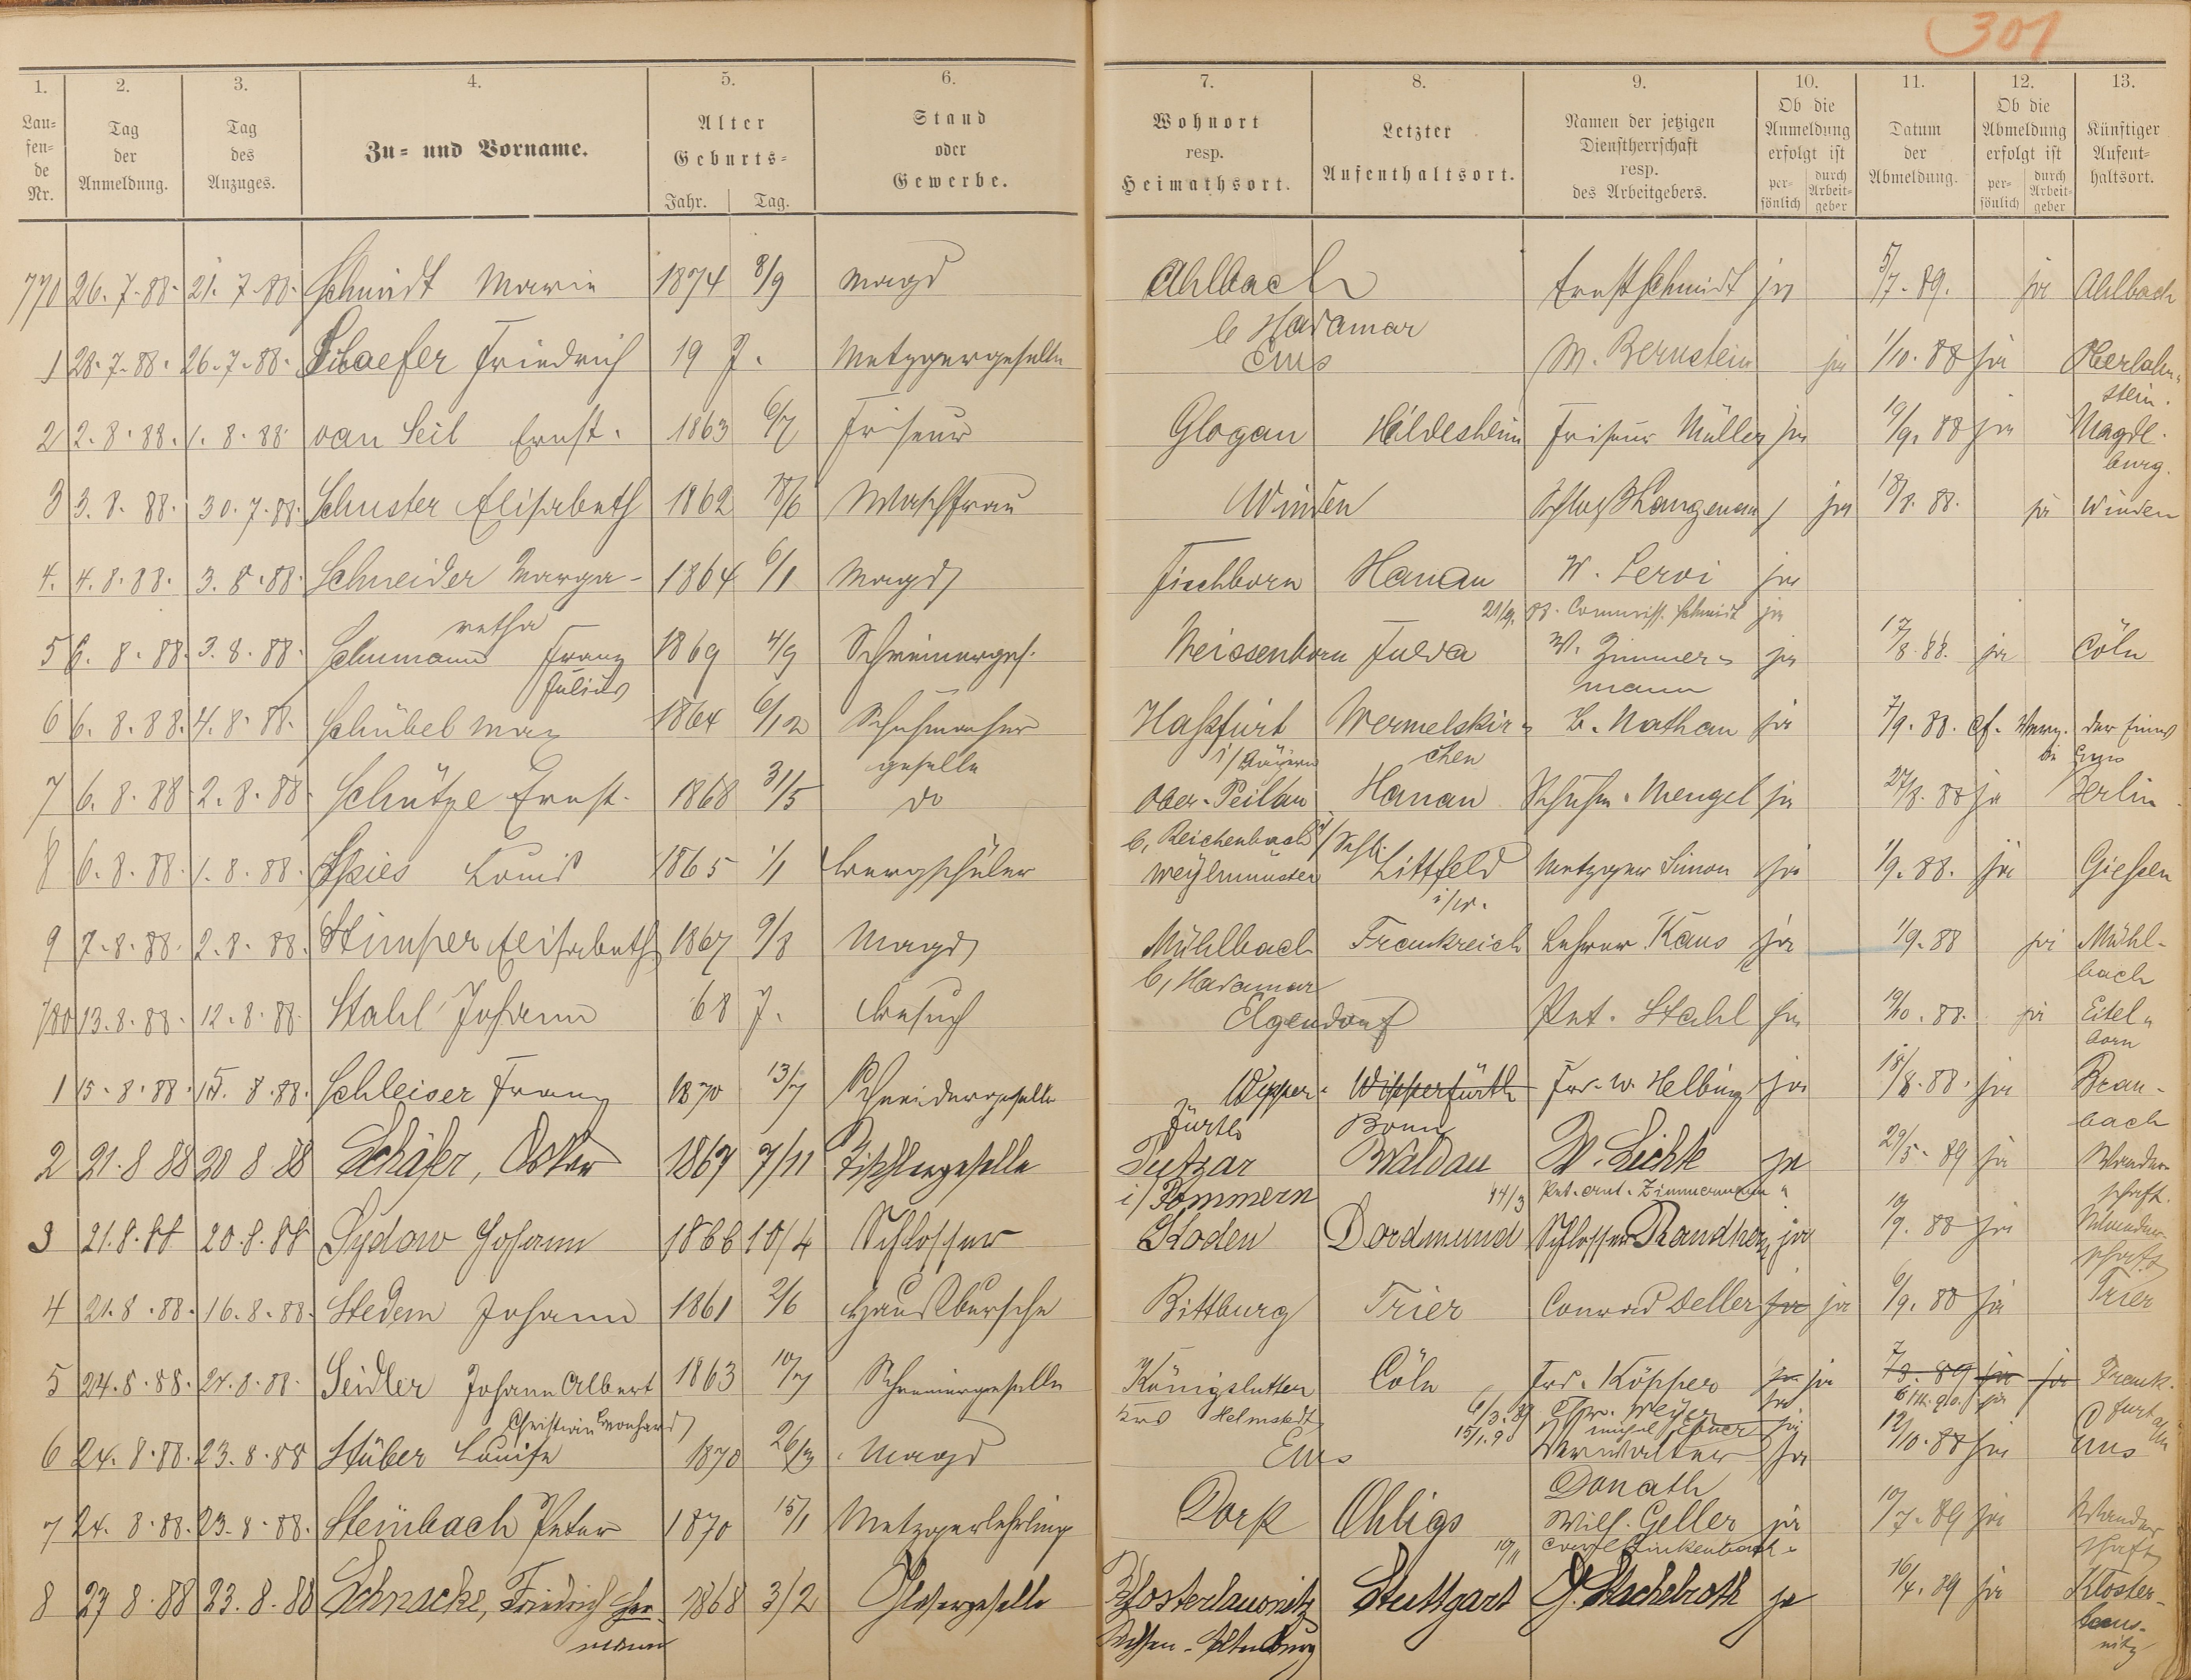 301
1. 2. 3. 4. 5. 6. 7. 8. 9. 10. 11. 12. 13.
Lau= fen= de Nr.
Tag der Anmeldung.
Tag des Anzuges.
Zu= und Vorname.
Alter Geburts= Jahr. Tag.
Stand oder Gewerbe.
Wohnort resp. Heimathsort.
Letzter Aufenthaltsort.
Namen der jetzigen Dienstherrschaft resp. des Arbeitgebers.
Ob die Anmeldung erfolgt ist per= sönlich durch Arbeit= geber
Datum der Abmeldung.
Ob die Abmeldung erfolgt ist per= sönlich durch Arbeit= geber
Künftiger Aufent= haltsort.
770 26. 7. 88. 21. 7. 88. Schmidt Marie 1874 8/9 Magd Ahlbach Ernst Schmidt ja 5/7. 89. ja Ahlbach
b Hadamar
1 28. 7. 88. 26. 7. 88. Schaefer Friedrich 19 J. Metzgergeselle Ems M. Bernstein ja 1/10. 88 ja Oberlahn=
stein.
2 2. 8. 88. 1. 8. 88 van Seil Ernst. 1863 6/7 Friseur Glogau Hildesheim Friseur Müller ja 19/9. 88 ja Magde
burg.
3 3. 8. 88. 30. 7. 88. Schuster Elisabeth 1862 18/6 Waschfrau Winden ja 18/8. 88. ja Winden
4. 4. 8. 88. 3. 8. 88. Schneider Marga- 1864 6/1 Magd Fischborn Hanau W. Leroi ja
retha 21/9. 88. Commiss. Schmidt ja
5 6. 8. 88. 3. 8. 88. Schumann Franz 1869 4/9 Schreinerges. Weissenborn Fulda W. Zimmer= ja 17/8. 88. ja Cöln
Julius mann
6 6. 8. 88. 4. 8. 88. Schübel Max 1864 6/12 Schuhmacher Haßfurt Wermelskir= B. Nathan ja 7/9. 88.
geselle i/Baiern chen
7 6. 8. 88. 2. 8. 88. Schütze Ernst. 1868 31/5 do Ober-Peilau Hanau Schuhm. Mengel ja 27/8. 88 ja Berlin
b, Reichenbach i/Schl.
8 6. 8. 88. 1. 8. 88. Spies Louis 1865 1/1 Bergschüler Weylmünster Littfeld Metzger Simon ja 1/9. 88. ja Gießen
i/W.
9 7. 8. 88. 2. 8. 88. Stimper Elisabeth 1867 9/8 Magd Mühlbach Frankreich Lehrer Kaus ja 1/9. 88 ja Mühl-
b, Hadamar bach
780 13. 8. 88. 12. 8. 88. Stahl Johann 68 J. Besuch Elgendorf Pet. Stahl ja 19/10. 88. ja Eitel=
born
1 15. 8. 88. 15. 8. 88. Schleiser Franz 1870 13/7 Schneidergeselle Wipper= Wipperfürth Frd. W. Helbing ja 18/8. 88. ja Brau-
fürth Bonn bach
2 21. 8 88 20 8 88 Schäfer, Oskar 1867 7/11 Tischlergeselle Putzar Waldau W. Lichte ja 29/5. 89 ja Wander-
i/Pommern 14/3 Pet. Ant. Zimmermann " schaft.
3 21. 8. 88 20. 8. 88 Sydow Johann 1866 10/4 Schlosser Stoden Dordmund Schlosser ja 19/9. 88 ja Wander-
schaft
4 21. 8. 88. 16. 8. 88. Stedem Johann 1861 2/6 Hausbursche Bittburg Trier Conrad Deller ja ja 6/9. 88 ja Trier
5 24. 8. 88. 24. 8. 88. Seidler Johann Albert 1863 10/7 Schreinergeselle Königslutter Cöln Frd. Köpper ja ja 7/3. 89 ja ja Frank-
Christian Leonhard Krs Helmstedt 6/3. 89 Meyer ja furt a/M
15/1. 90
6 24. 8. 88. 23. 8. 88 Stüber Louise 1870 26/3 Magd Ems Verwalter ja 12/10. 88 ja Ems
Donath
7 24. 8. 88. 23. 8. 88. Steinbach Peter 1870 15/1 Metzgerlehrling Dorp Ohligs Wilh. Geller ja 10/7. 89 ja Wander
schaft
8 27 8. 88 23. 8. 88 Schnacke, Friedrich Her 1868 3/2 Glasergeselle Klosterlausnitz Stuttgart G. Stachelroth ja 16/4. 89 ja Kloster-
mann Sachsen-Altenburg laus-
nitz